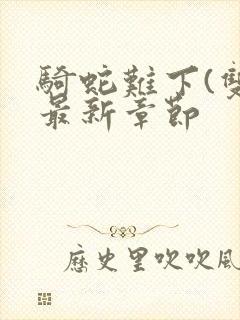 騎蛇難下(雙
最新章節
歷史里吹吹風